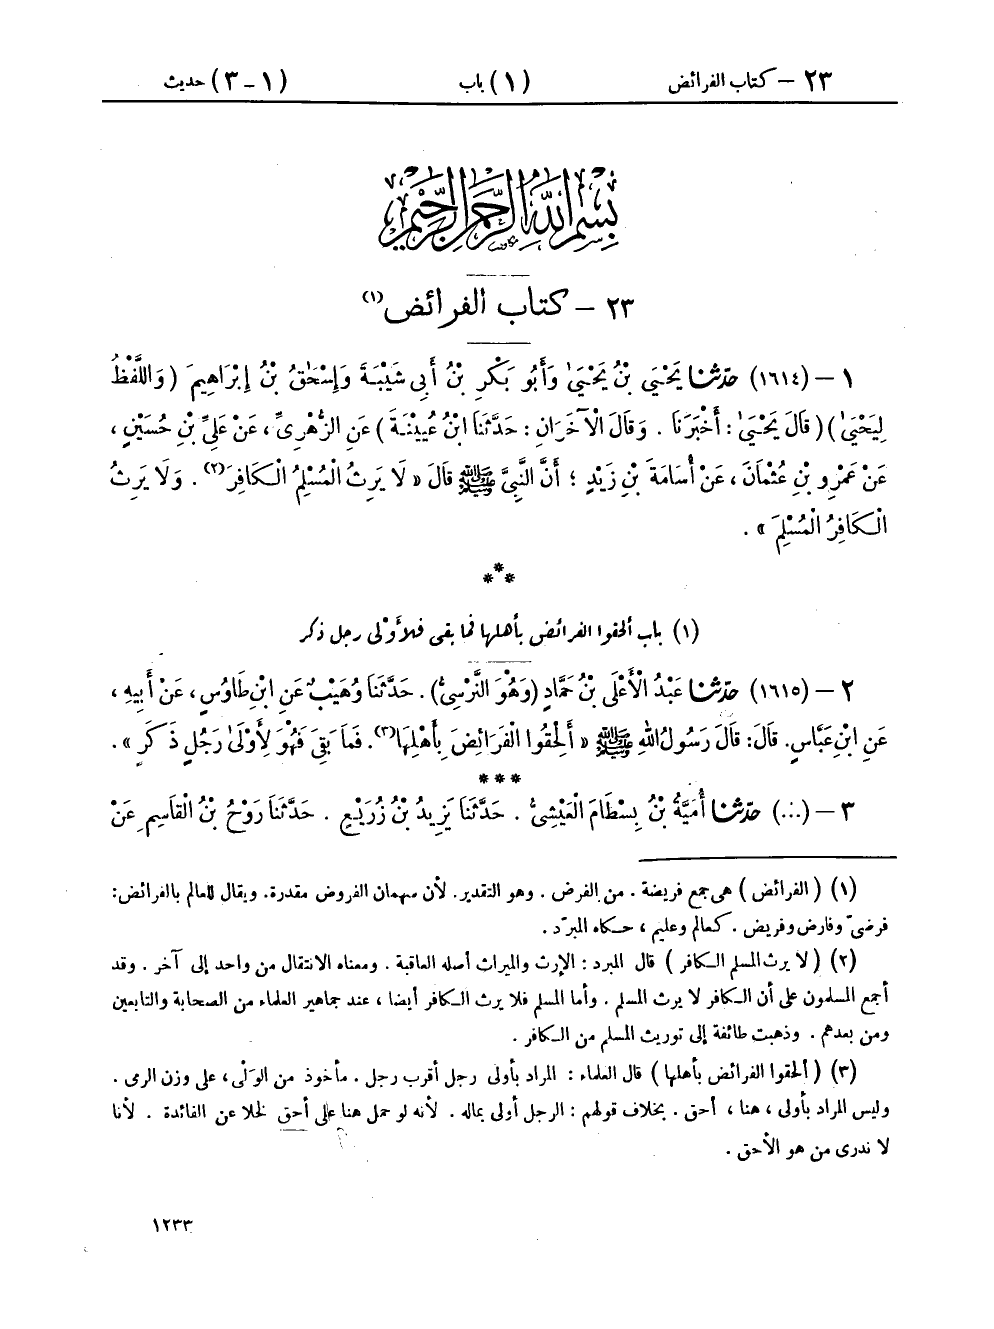 ٢٣ – كتاب الفرائض (١) باب (١ – ٣) حديث
بسم الله الرحمن الرحيم
٢٣ – كتاب الفرائض (١)
١ – (١٦١٤) حَدَّثَنَا يَحْيَىٰ بْنُ يَحْيَىٰ وَأَبُو بَكْرِ بْنُ أَبِي شَيْبَةَ وَإِسْحَٰقُ بْنُ إِبْرَاهِيمَ (وَاللَّفْظُ
لِيَحْيَىٰ) (قَالَ يَحْيَىٰ : أَخْبَرَنَا . وَقَالَ الْآخَرَانِ : حَدَّثَنَا ابْنُ عُيَيْنَةَ) عَنِ الزُّهْرِىِّ ، عَنْ عَلِىِّ بْنِ حُسَيْنٍ ،
عَنْ عَمْرِو بْنِ عُثْمَانَ ، عَنْ أُسَامَةَ بْنِ زَيْدٍ ؛ أَنَّ النَّبِىَّ ﷺ قَالَ « لَا يَرِثُ الْمُسْلِمُ الْكَافِرَ (٢) . وَلَا يَرِثُ
الْكَافِرُ الْمُسْلِمَ » .
***
(١) باب ألحقوا الفرائض بأهلها فما بقى فلأولى رجل ذكر
٢ – (١٦١٥) حَدَّثَنَا عَبْدُ الْأَعْلَى بْنُ حَمَّادٍ (وَهُوَ النَّرْسِىُّ) . حَدَّثَنَا وُهَيْبٌ عَنِ ابْنِ طَاوُسٍ ، عَنْ أَبِيهِ ،
عَنِ ابْنِ عَبَّاسٍ . قَالَ : قَالَ رَسُولُ اللهِ ﷺ « أَلْحِقُوا الْفَرَائِضَ بِأَهْلِهَا (٣) . فَمَا بَقِىَ فَهُوَ لِأَوْلَىٰ رَجُلٍ ذَكَرٍ » .
***
٣ – (...) حَدَّثَنَا أُمَيَّةُ بْنُ بِسْطَامَ الْعَيْشِىُّ . حَدَّثَنَا يَزِيدُ بْنُ زُرَيْعٍ . حَدَّثَنَا رَوْحُ بْنُ الْقَاسِمِ عَنْ
(١) (الفرائض) هى جمع فريضة . من الفرض . وهو التقدير . لأن سهمان الفروض مقدرة . ويقال للعالم بالفرائض :
فرضىّ وفارض وفريض . كعالم وعليم ، حكاه المبرّد .
(٢) (لا يرث المسلم الكافر) قال المبرد : الإرث والميراث أصله العاقبة . ومعناه الانتقال من واحد إلى آخر . وقد
أجمع المسلمون على أن الكافر لا يرث المسلم . وأما المسلم فلا يرث الكافر أيضا ، عند جماهير العلماء من الصحابة والتابعين
ومن بعدهم . وذهبت طائفة إلى توريث المسلم من الكافر .
(٣) (ألحقوا الفرائض بأهلها) قال العلماء : المراد بأولى رجل أقرب رجل . مأخوذ من الوَلْى ، على وزن الرمى .
وليس المراد بأولى ، هنا ، أحق . بخلاف قولهم : الرجل أولى بماله . لأنه لو حمل هنا على أحق لخلا عن الفائدة . لأنا
لا ندرى من هو الأحق .
١٢٣٣